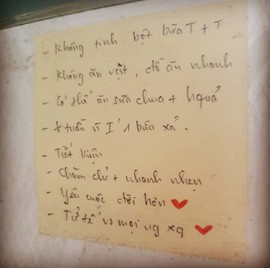 - Không tinh bột bữa T + T
- Không ăn vặt, đồ ăn nhanh
- Có thể ăn sữa chua + hquả
- 1 tuần vì 1 bữa xả.
- Tiết kiệm
- Chăm chỉ + nhanh nhẹn
- Yêu cuộc đời hơn ❤
- Tử tế vs mọi ng xq ❤